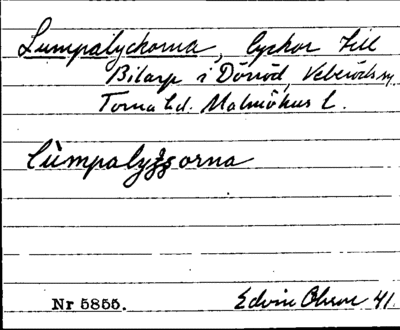 Lumpalyckorna, lyckor till
Bilarp i Dörröd, Veberöds sn.
Torna hd. Malmöhus l.
lumpalyckorna
Nr 5855. Edvin Ohlson 41.